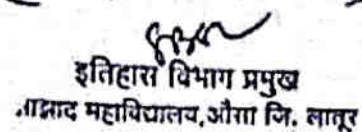 इतिहास विभाग प्रमुख
महाविद्यालय, औसा जि. लातूर